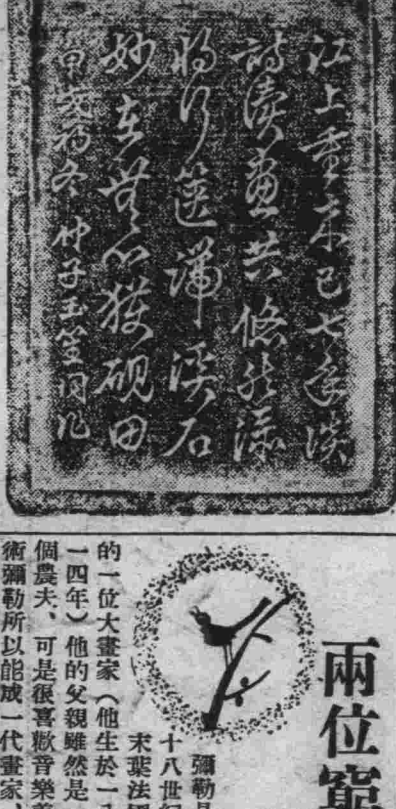 江上重來已七年談
詩讀畫共悠然添
行篋端溪石
妙在無心獲硯田
甲戌初冬 仲子玉笙同
兩位窮
彌勒是
十八世紀
末葉法國
的一位大畫家（他生於一八
一四年）他的父親雖然是
個農夫、可是很喜歡音樂美
術彌勒所以能成一代畫家、